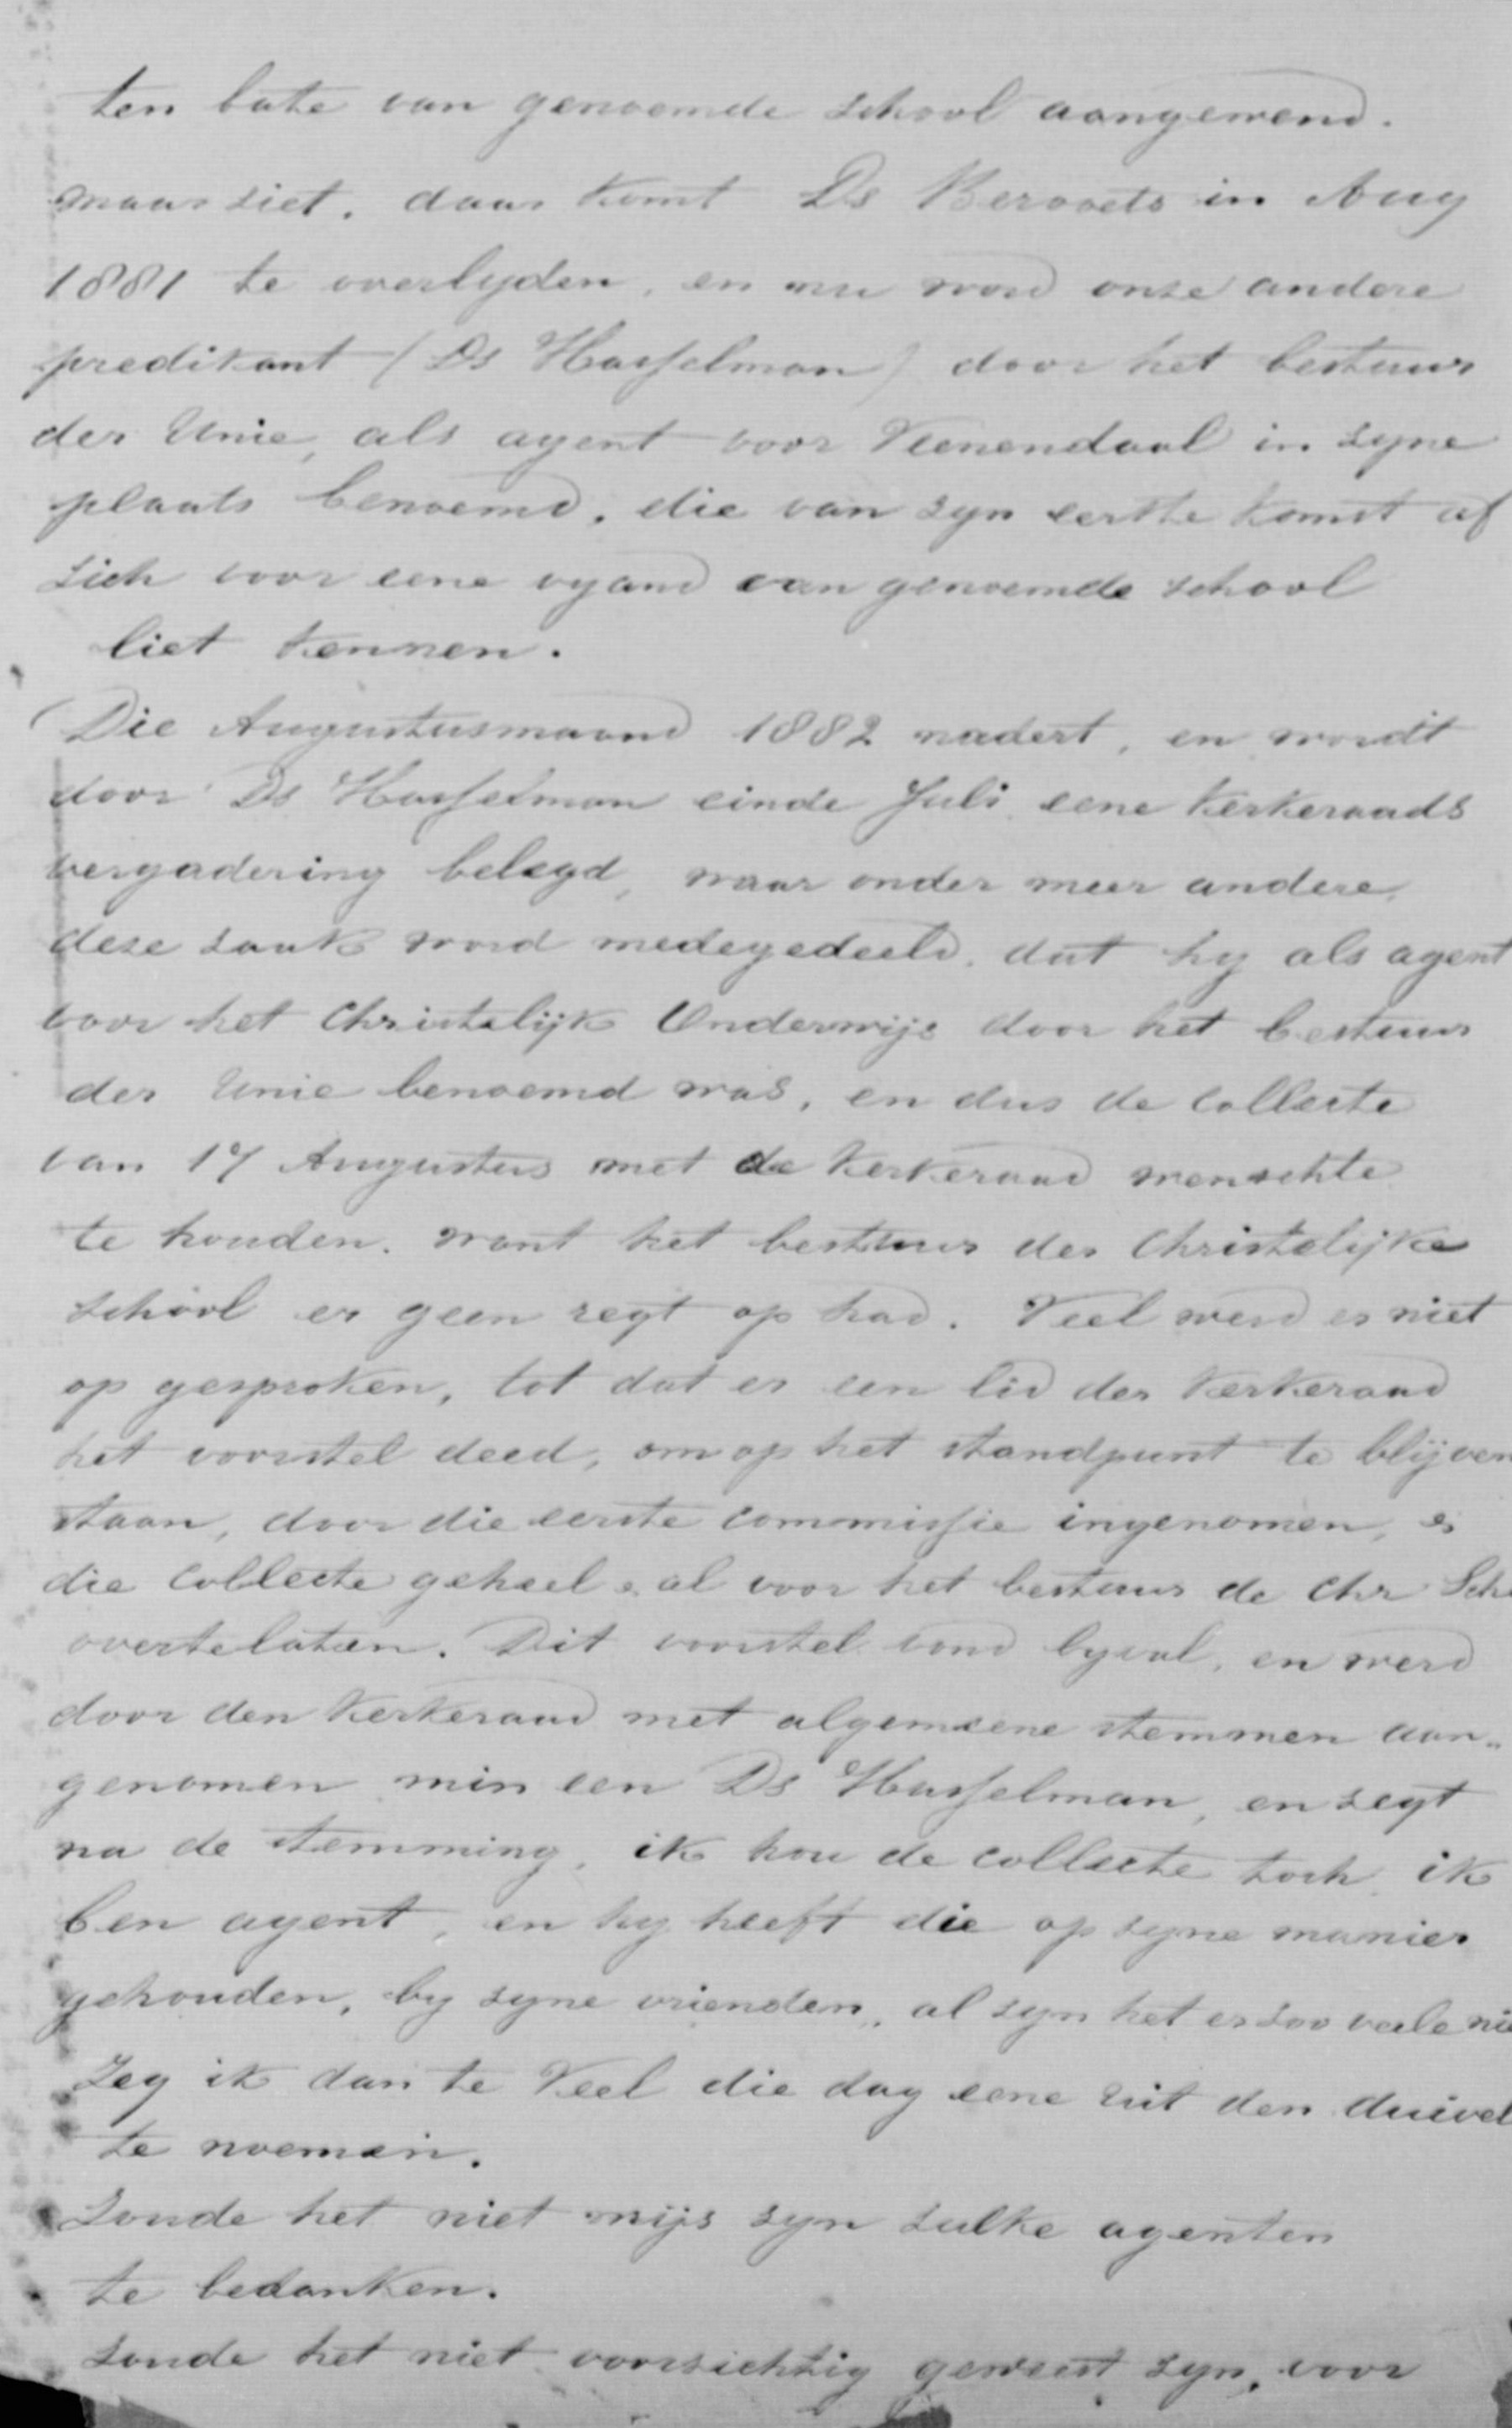 ten bate van genoemde school aangewend.
maar siet, daar komt Ds Berooets in Aug
1881 te overlyden, en nu word onse andere
predikant (Ds Hasselman) door het bestuur
der Unie, als agent voor Veenendaal in syne
plaats benoemd, die van syn eerste komst af
sich voor eene vyand van genoemde school
liet kennen.
Die Augustusmaand 1882 nadert, en wordt
door Ds Hasselman einde Juli eene kerkeraads
vergadering belegd, waar onder meer andere,
dese saak word medegedeeld, dat hy als agent
voor het Christelijk Onderwijs door het bestuur
der Unie benoemd was, en dus de collecte
van 17 Augustus met de kerkeraad wenschte
te houden. want het bestuur der Christelijke
school er geen regt op had. Veel werd er niet
op gesproken, tot dat er een lid der kerkeraad
het voorstel deed, om op het standpunt te blijven
staan, door die eerste commissie ingenomen, en
die collecte geheel & al voor het bestuur de Chr Sch
overtelaten. Dit voorstel vond byval, en werd
door den kerkeraad met algemeene stemmen aan„
genomen min een Ds Hasselman, en segt
na de stemming, ik hou de collecte toch ik
ben agent, en hy heeft die op syne manier
gehouden, by syne vrienden, al syn het er soo veele nie
Zeg ik dan te Veel die dag eene uit den duivel
te noemen.
Soude het niet wijs syn sulke agenten
te bedanken.
Soude het niet voorsichtig geweest syn, voor